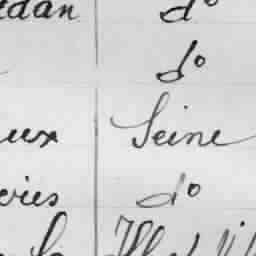 edan d°
d°
eux Seine
vies d°